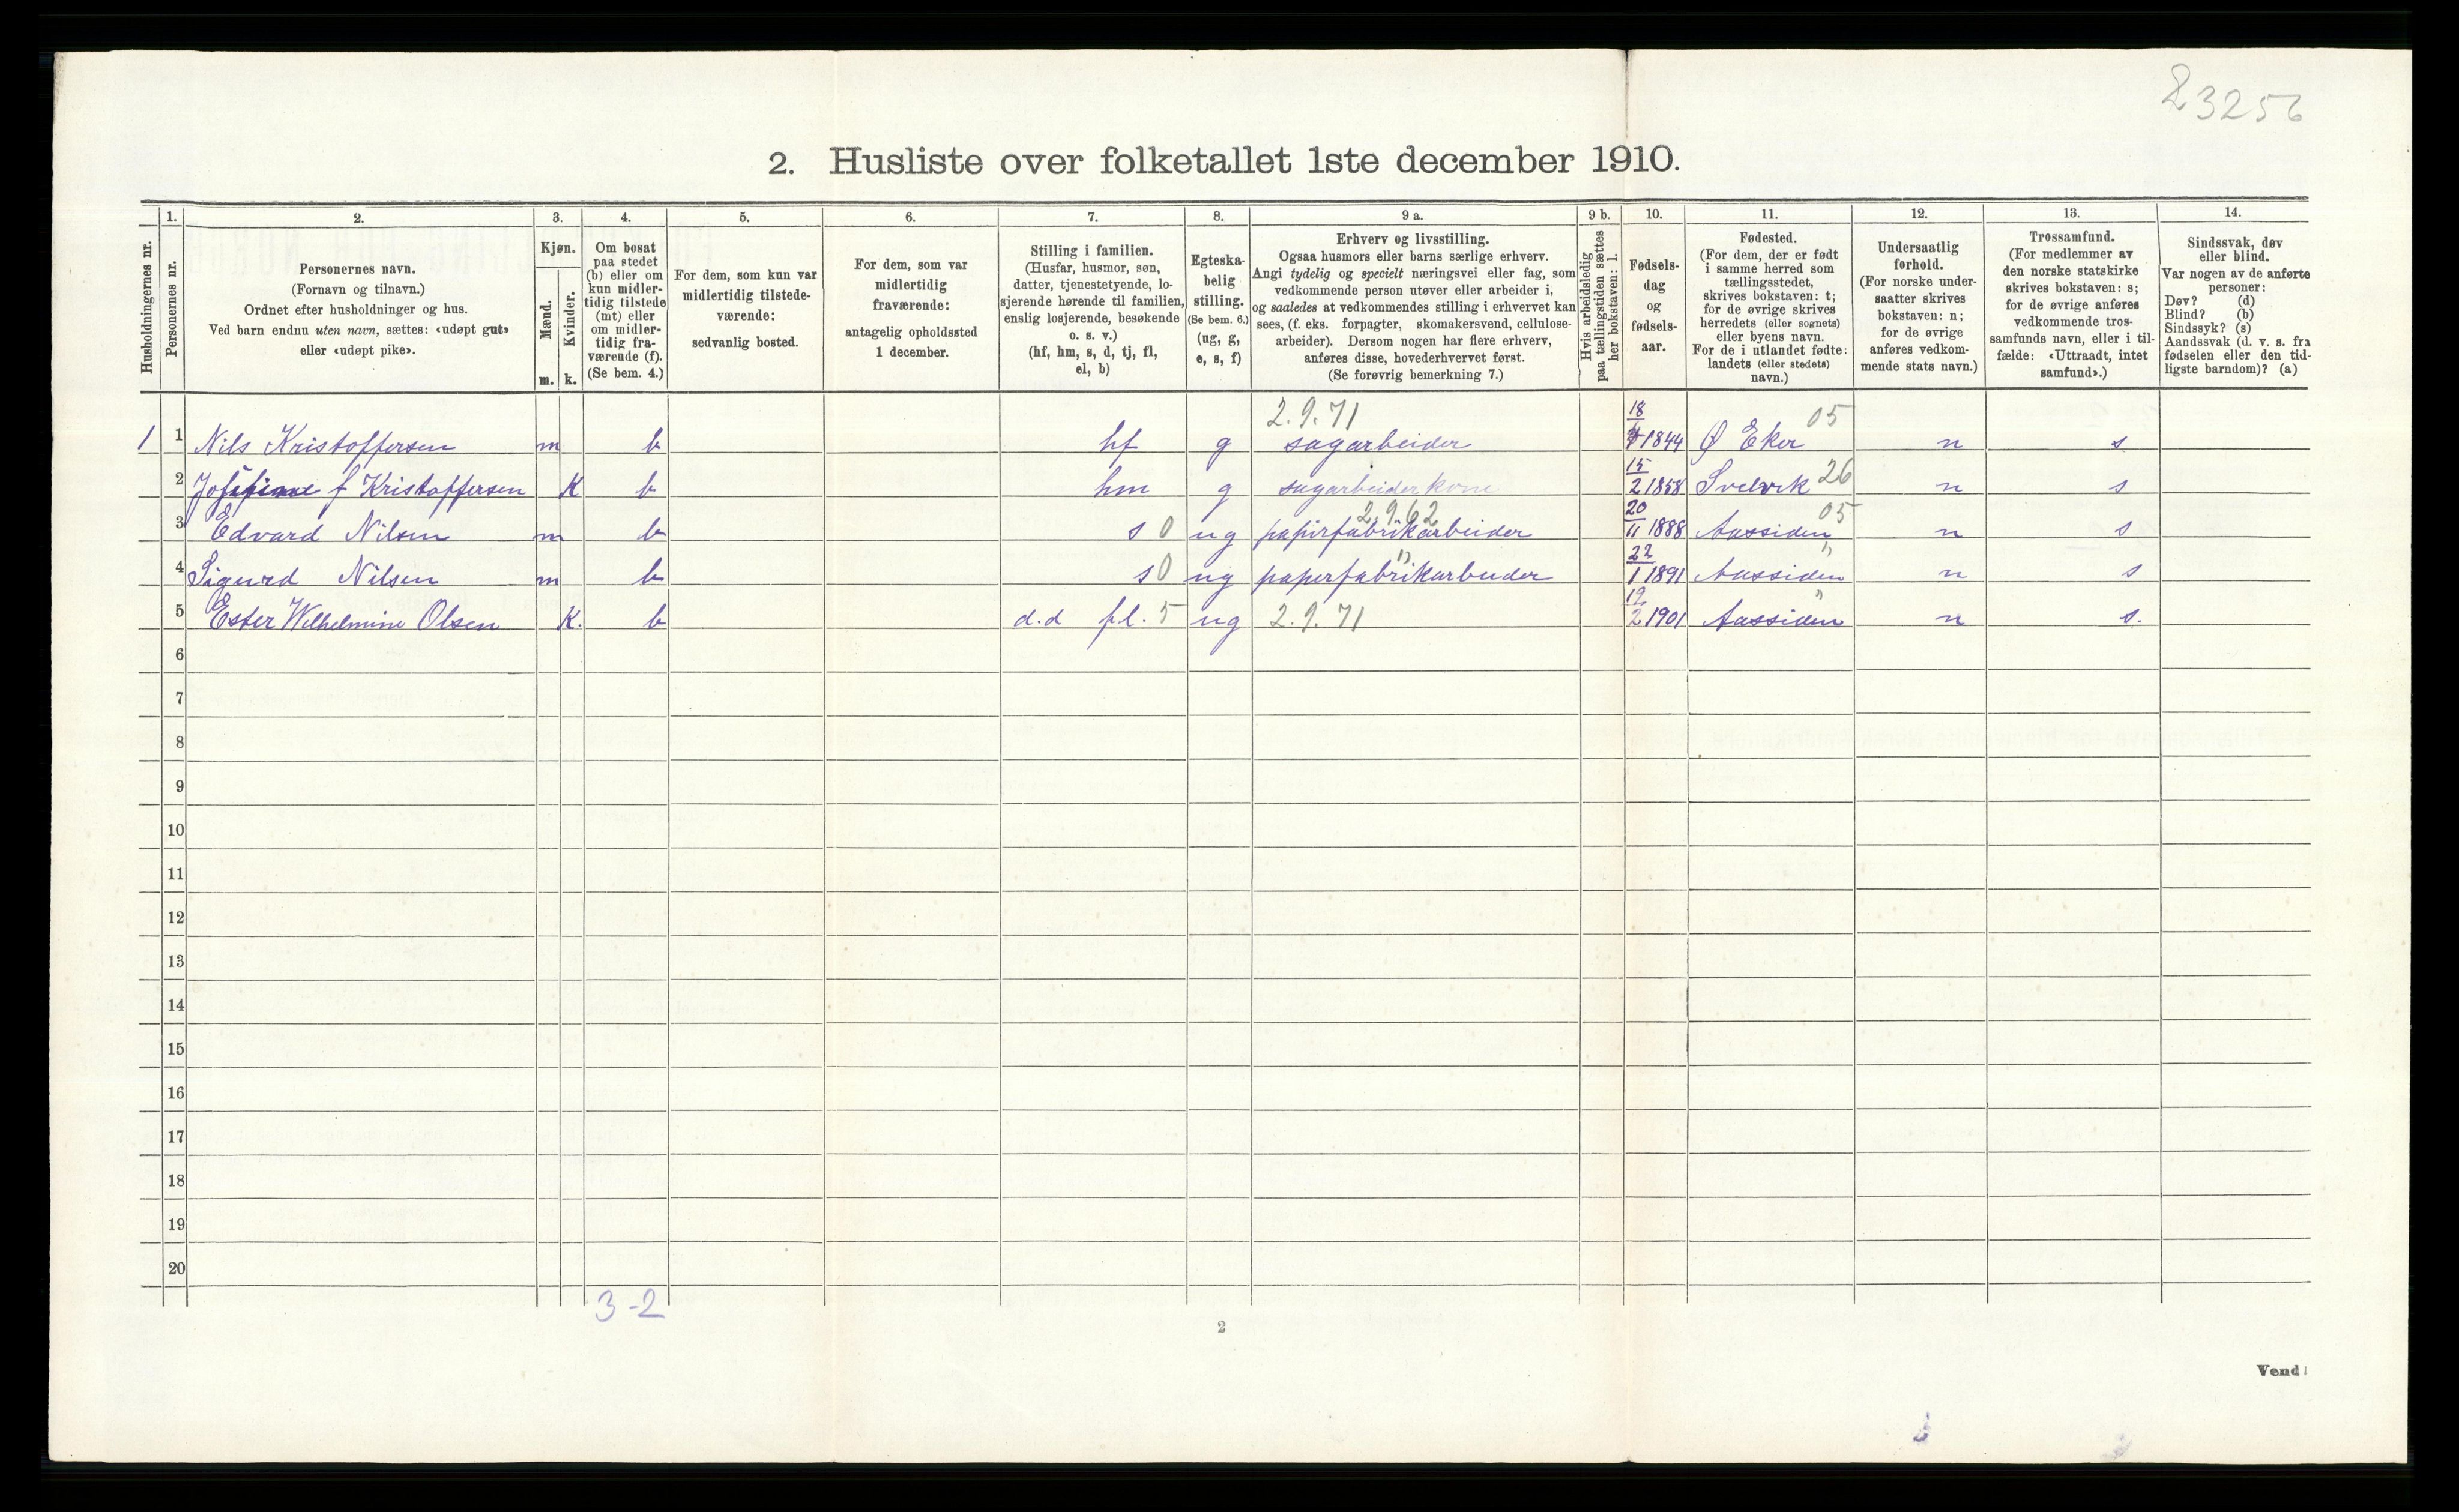 23256
2. Husliste over folketallet 1ste december 1910.
Husholdningernes nr.
1.
Personernes nr.
2.
Personernes navn.
(Fornavn og tilnavn.)
Ordnet efter husholdninger og hus.
Ved barn endnu uten navn, sættes: «udøpt gut»
eller «udøpt pike».
3.
Kjøn.
Mænd.
m.
Kvinder.
k.
4.
Om bosat
paa stedet
(b) eller om
kun midler-
tidig tilstede
(mt) eller
om midler-
tidig fra-
værende (f).
(Se bem. 4.)
5.
For dem, som kun var
midlertidig tilstede-
værende:
sedvanlig bosted.
6.
For dem, som var
midlertidig
fraværende:
antagelig opholdssted
1 december.
7.
Stilling i familien.
(Husfar, husmor, søn,
datter, tjenestetyende, lo-
sjerende hørende til familien,
enslig losjerende, besøkende
o. s. v.)
(hf, hm, s, d, tj, fl,
el, b)
8.
Egteska-
belig
stilling.
(Se bem. 6.)
(ug, g,
e, s, f)
9 a.
Erhverv og livsstilling.
Ogsaa husmors eller barns særlige erhverv.
Angi tydelig og specielt næringsvei eller fag, som
vedkommende person utøver eller arbeider i,
og saaledes at vedkommendes stilling i erhvervet kan
sees, (f. eks. forpagter, skomakersvend, cellulose-
arbeider). Dersom nogen har flere erhverv,
anføres disse, hovederhvervet først.
(Se forøvrig bemerkning 7.)
9 b.
Hvis arbeidsledig
paa tællingstiden sættes
her bokstaven: l.
10.
Fødsels-
dag
og
fødsels-
aar.
11.
Fødested.
(For dem, der er født
i samme herred som
tællingsstedet,
skrives bokstaven: t;
for de øvrige skrives
herredets (eller sognets)
eller byens navn.
For de i utlandet fødte:
landets (eller stedets)
navn.)
12.
Undersaatlig
forhold.
(For norske under-
saatter skrives
bokstaven: n;
for de øvrige
anføres vedkom-
mende stats navn.)
13.
Trossamfund.
(For medlemmer av
den norske statskirke
skrives bokstaven: s;
for de øvrige anføres
vedkommende tros-
samfunds navn, eller i til-
fælde: «Uttraadt, intet
samfund».)
14.
Sindssvak, døv
eller blind.
Var nogen av de anførte
personer:
Døv? (d)
Blind? (b)
Sindssyk? (s)
Aandssvak (d. v. s. fra
fødselen eller den tid-
ligste barndom)? (a)
2.9.71 18 05
1 1 Nils Kristoffersen m b hf g sagarbeider 1844 Ø Eker n s
15 26
2 f Kristoffersen K b hm g sagarbeider kone 2 1858 Svelvik n s
2.9.62 20 05
3 Edvard Nilsen m b s 0 ug papirfabrikarbeider 11 1888 Aassiden n s
" 22 "
4 Sigurd Nilsen m b s 0 ug paperfabrikarbeider 1 1891 Aassiden n s
19 "
5 Ester Wilhelmine Olsen K. b d.d fl. 5 ug 2.9.71 2 1901 Aassiden n s.
6
7
8
9
10
11
12
13
14
15
16
17
18
19
20
3-2
2
Vend!